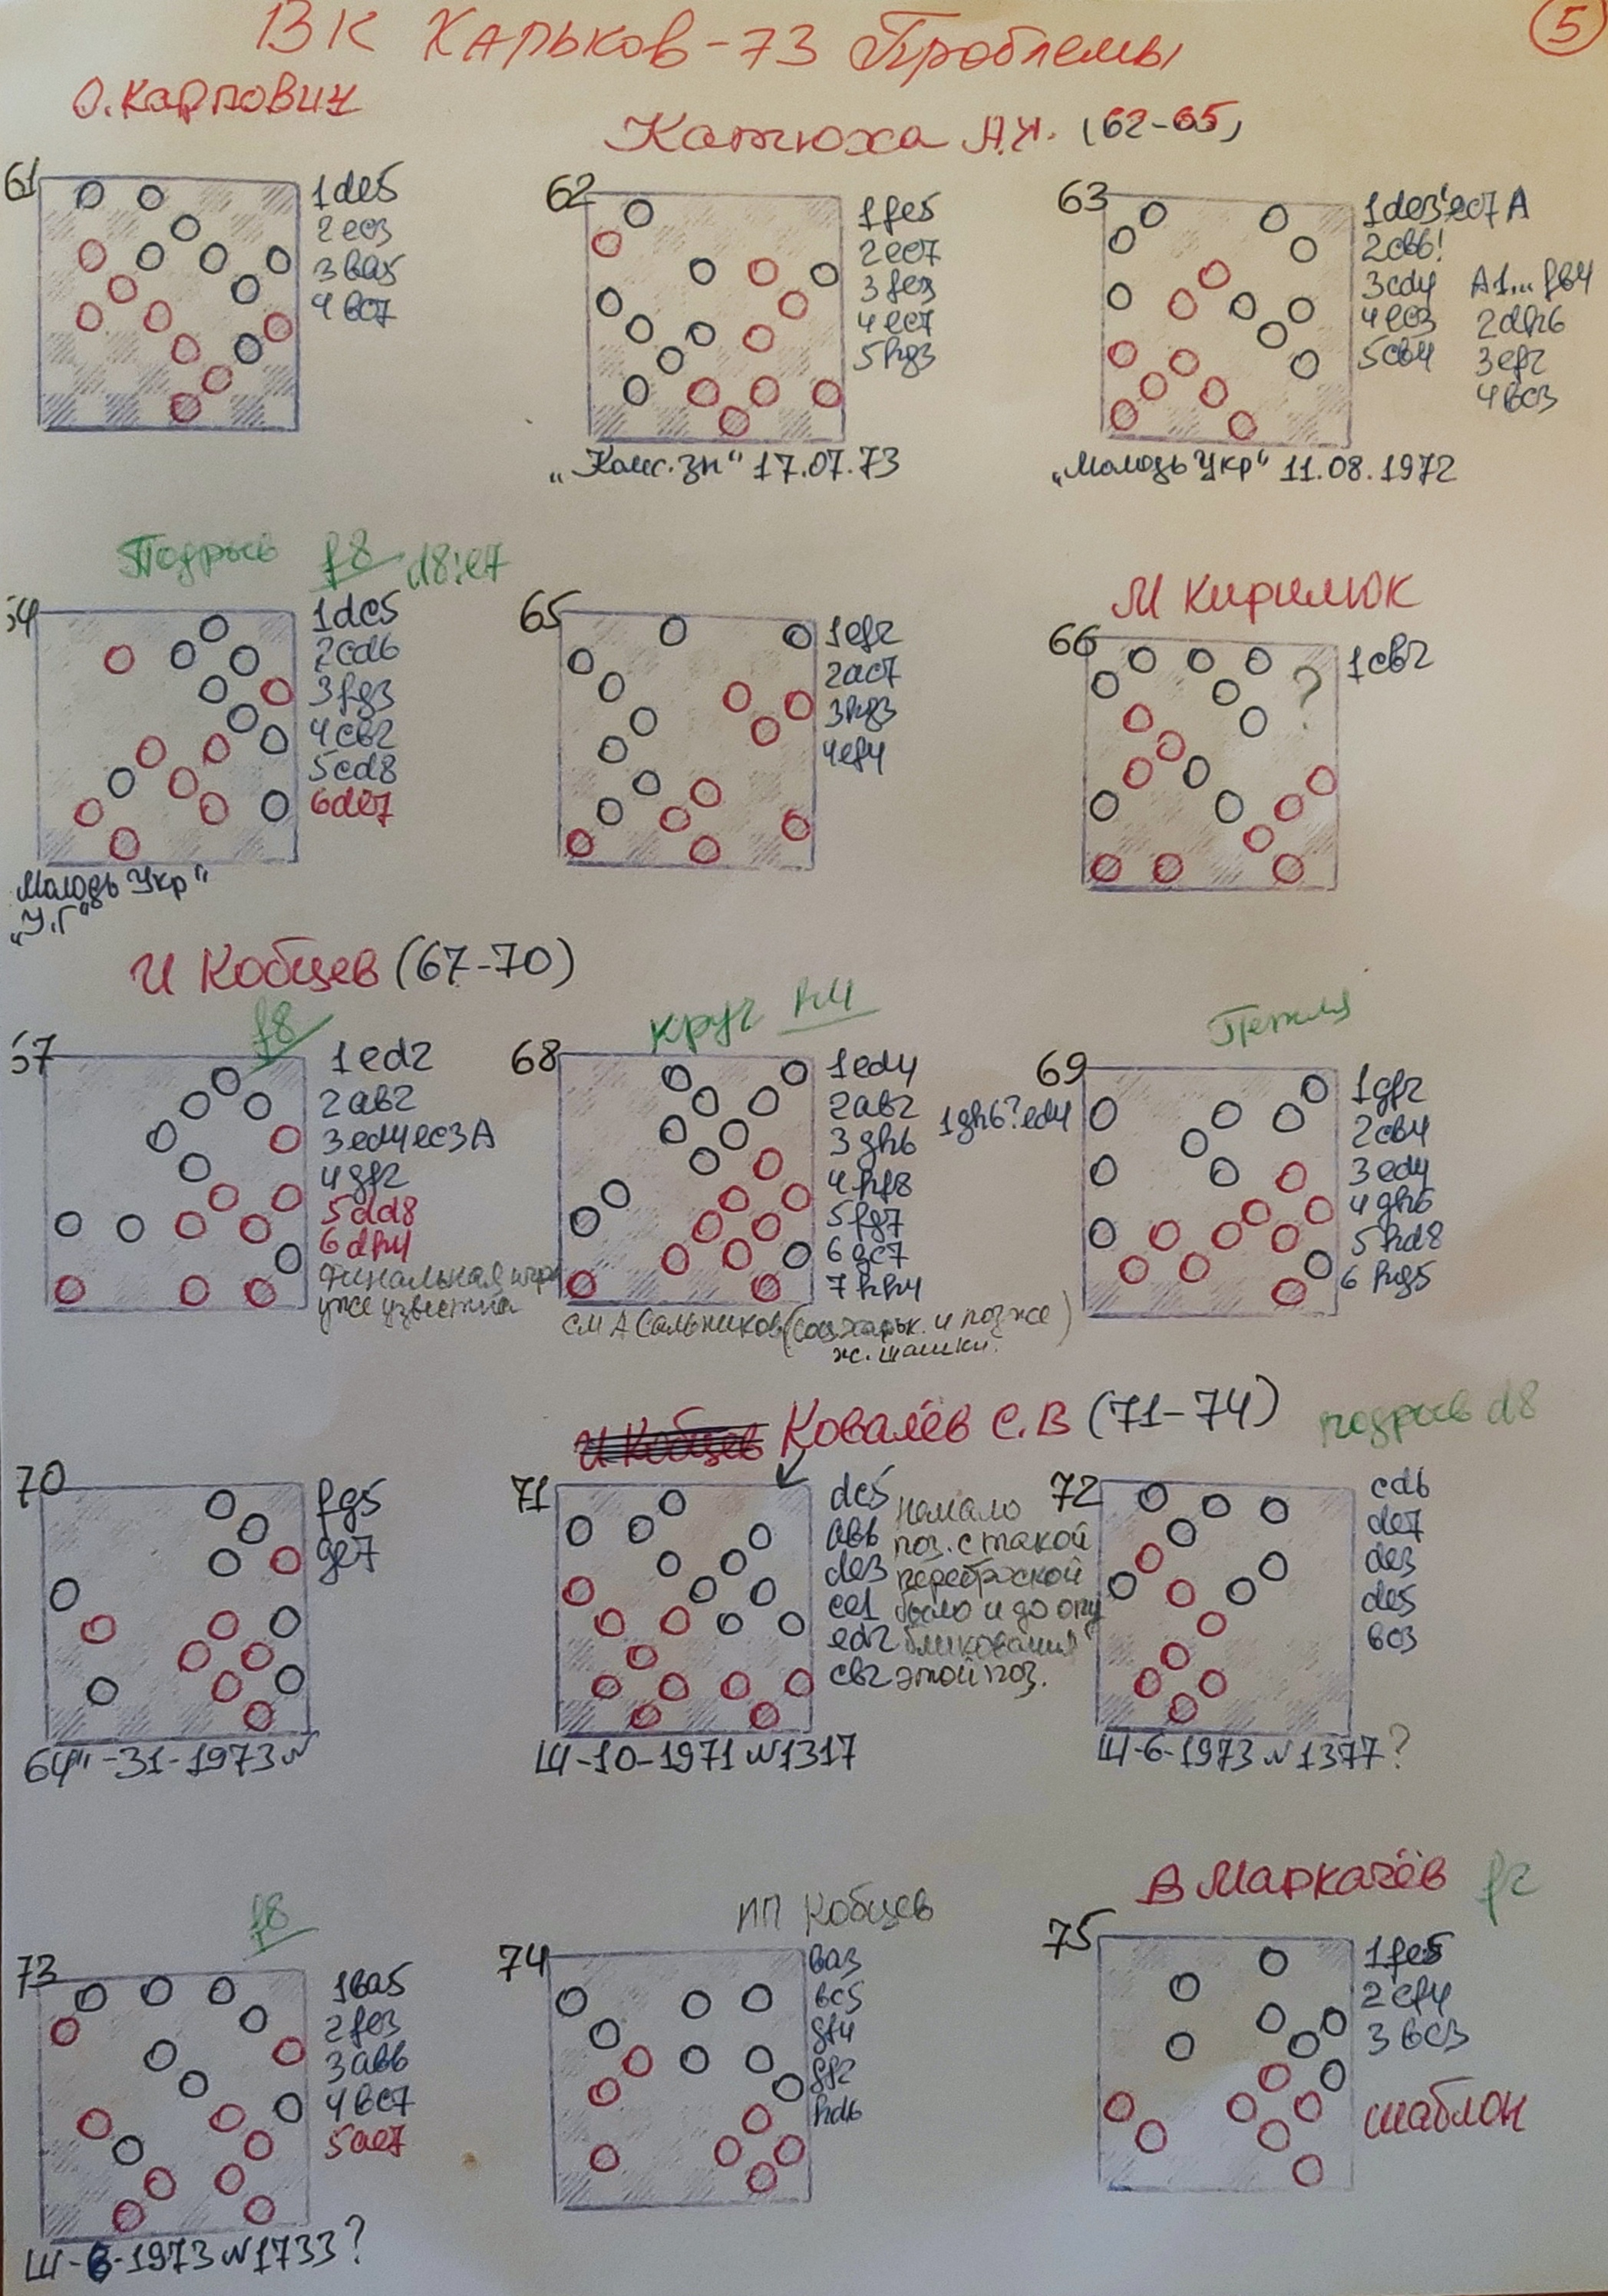 ВК Харьков-73 Проблемы
5
О. Карпович
Катюха А.Я. (62-65)
61
1de5
2ec3
3ba5
4bc7
62
1fe5
2ec7
3fe3
4ec7
5hg3
„Комс. зн“ 17.07.73
63
1de3! ec7 A
2cb6!
3cd4
4ec3
5cb4
A1... fb4
2dh6
3ef2
4bc3
„Молодь Укр“ 11.08.1972
Подрыв f8 d8:e7
64
1dc5
2cd6
3fg3
4cb2
5cd8
6de7
Молодь Укр“
„У.Г“
65
1ef2
2ac7
3hg3
4ef4
М Кирилюк
66
?
1cb2
И Кобцев (67-70)
f8
67
1ed2
2ab2
3ed4 ec3 A
4gf2
5dd8
6dh4
финальная игра
уже известна
круг h4
68
1ed4
2ab2
3gh6
4hf8
5fg7
6gc7
7hh4
см А Сальников (соц. харьк. и позже
ж. шашки.)
Петля
69
1gh6? ed4
1gf2
2cb4
3ed4
4gh6
5hd8
6hg5
70
fg5
ge7
64"-31-1973 №
И Кобцев Ковалёв С.В (71-74)
71
dc5
ab6
de3
ce1
ed2
cb2
немало
поз. с такой
переброской
было и до опу
бликования
этой поз.
Ш-10-1971 №1317
подрыв d8
72
cd6
de7
de3
de5
bc3
Ш-6-1973 №1377?
f8
73
1ba5
2fe3
3ab6
4bc7
5ae7
Ш-6-1973 №1733?
ИП Кобцев
74
ba3
bc5
gf4
gf2
hd6
В Маркачёв f2
75
1fe5
2cf4
3bc3
шаблон